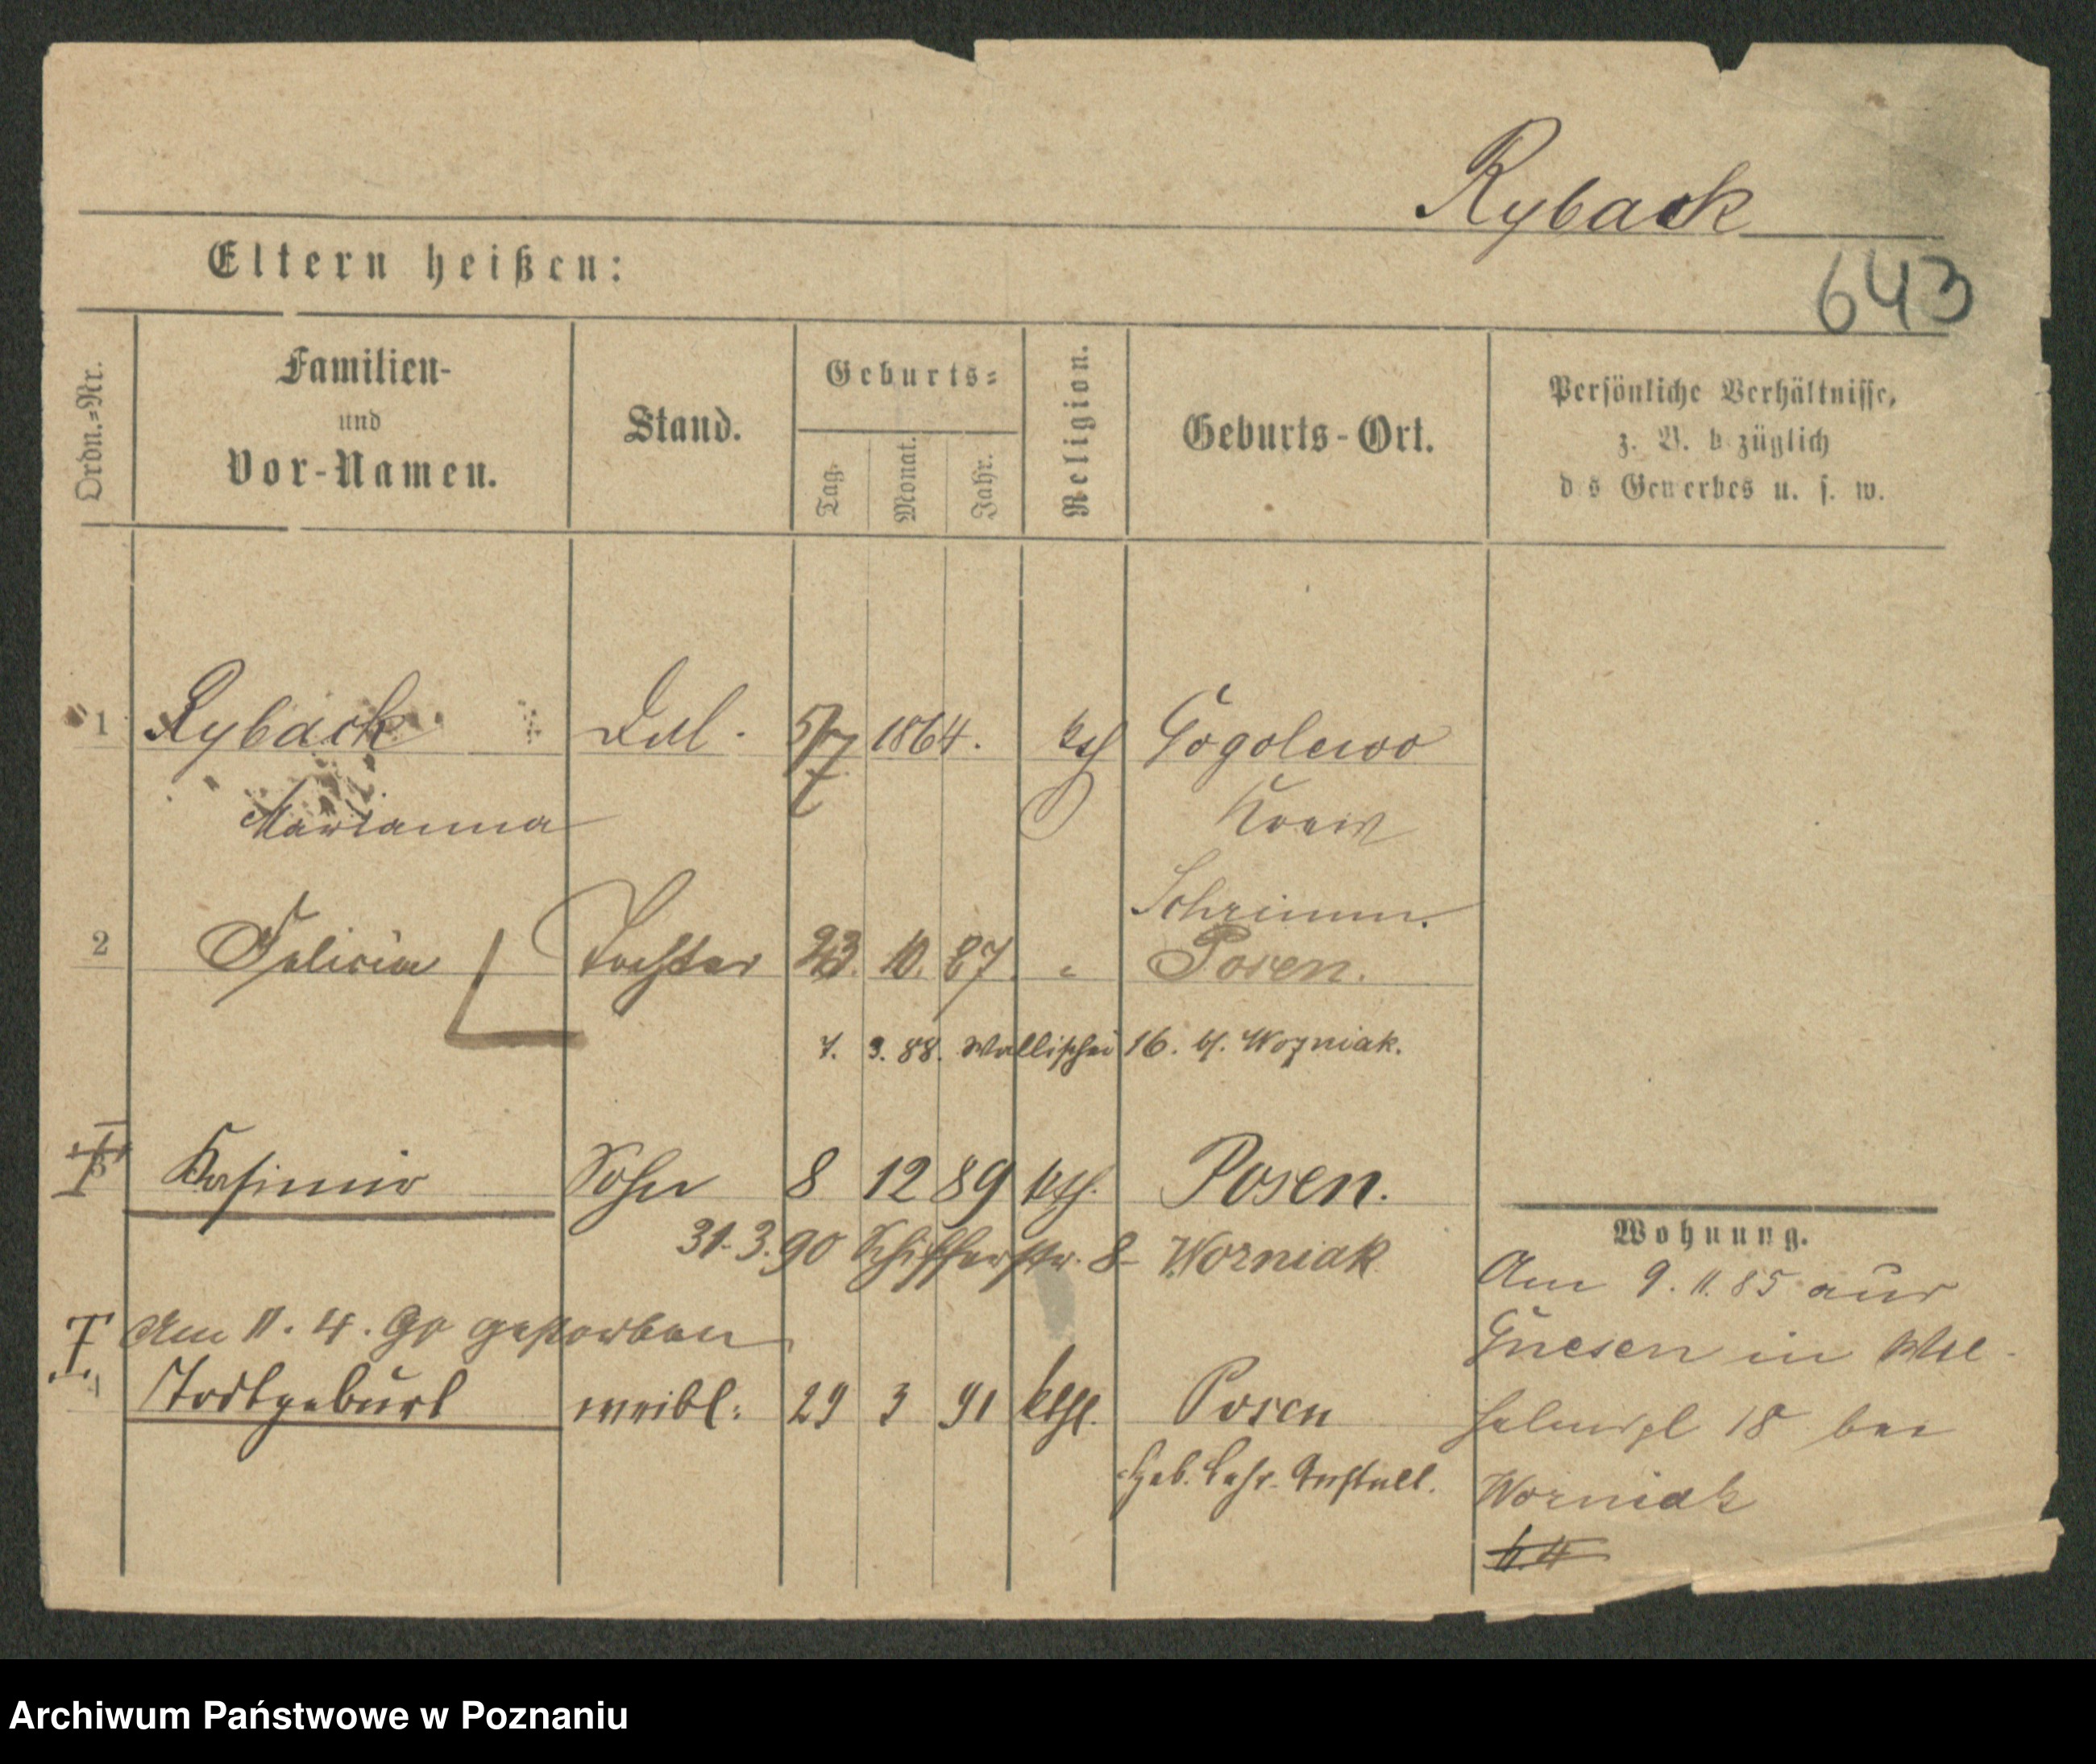 Ryback
643
Eltern heißen:
Ordn.=Nr.
Familien-
und
Vor-Namen.
Stand.
Geburts=
Tag.
Monat.
Jahr.
Religion.
Geburts-Ort.
Persönliche Verhältnisse,
z. B. b züglich
d s Gewerbes u. s. w.
1 Ryback 5/7 1864. Gogolewo
Marianna Kreis
Schrimm.
2 Felicia Tochter 23. 10. 87. " Posen.
7. 3. 88. Wallischei 16. b/. Wozniak.
3 Kasimir Sohn 8 12 89 kth. Posen.
31. 3. 90 Schifferstr. 8 - Worniak
Am 11. 4. 90 gestorben
4 Todtgeburt weibl: 29 3 91 kthl. Posen
Heb. Lehr-Anstalt.
Wohnung.
Am 9. 11. 85 aus
Gnesen in Wil-
helmspl 18 bei
Worniak